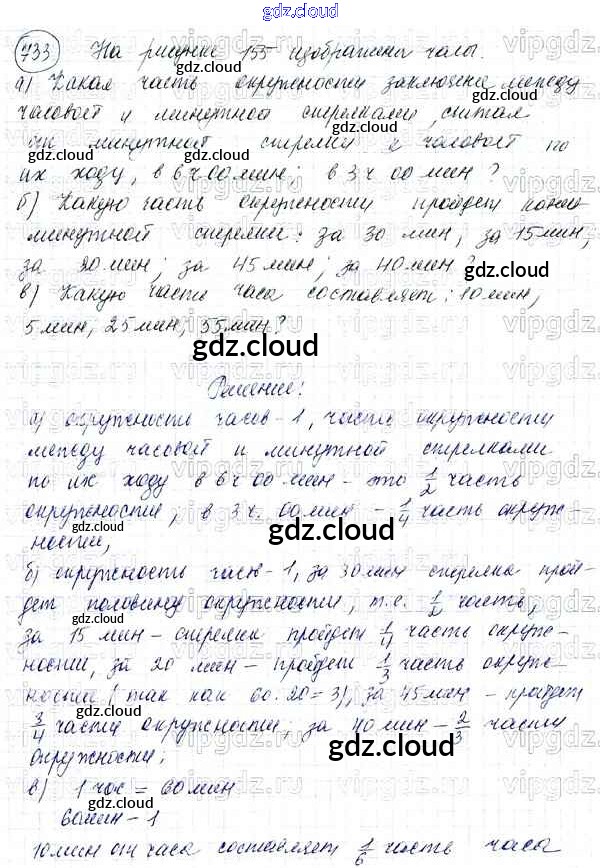 gdz.cloud
733 На рисунке 155 изображены часы.
а) Какая часть окружности заключена между
часовой и минутной стрелками, считая
от минутной стрелки к часовой по
их ходу, в 6 ч 00 мин; в 3 ч 00 мин?
б) Какую часть окружности пройдет конец
минутной стрелки: за 30 мин, за 15 мин,
за 20 мин; за 45 мин; за 40 мин?
в) Какую часть часа составляет: 10 мин,
5 мин, 25 мин, 55 мин?
gdz.cloud
Решение:
а) окружность часов - 1, часть окружности
между часовой и минутной стрелками
по их ходу в 6 ч 00 мин - это 1/2 часть
окружности, в 3 ч. 00 мин - 1/4 часть окруж-
ности,
б) окружность часов - 1, за 30 мин стрелка прой-
дет половину окружности, т.е. 1/2 часть,
за 15 мин - стрелка пройдет 1/4 часть окруж-
ности, за 20 мин - пройдет 1/3 часть окруж-
ности (так как 60:20=3), за 45 мин - пройдет
3/4 части окружности; за 40 мин - 2/3 части
окружности;
в) 1 час = 60 мин
60 мин - 1
10 мин от часа составляет 1/6 часть часа